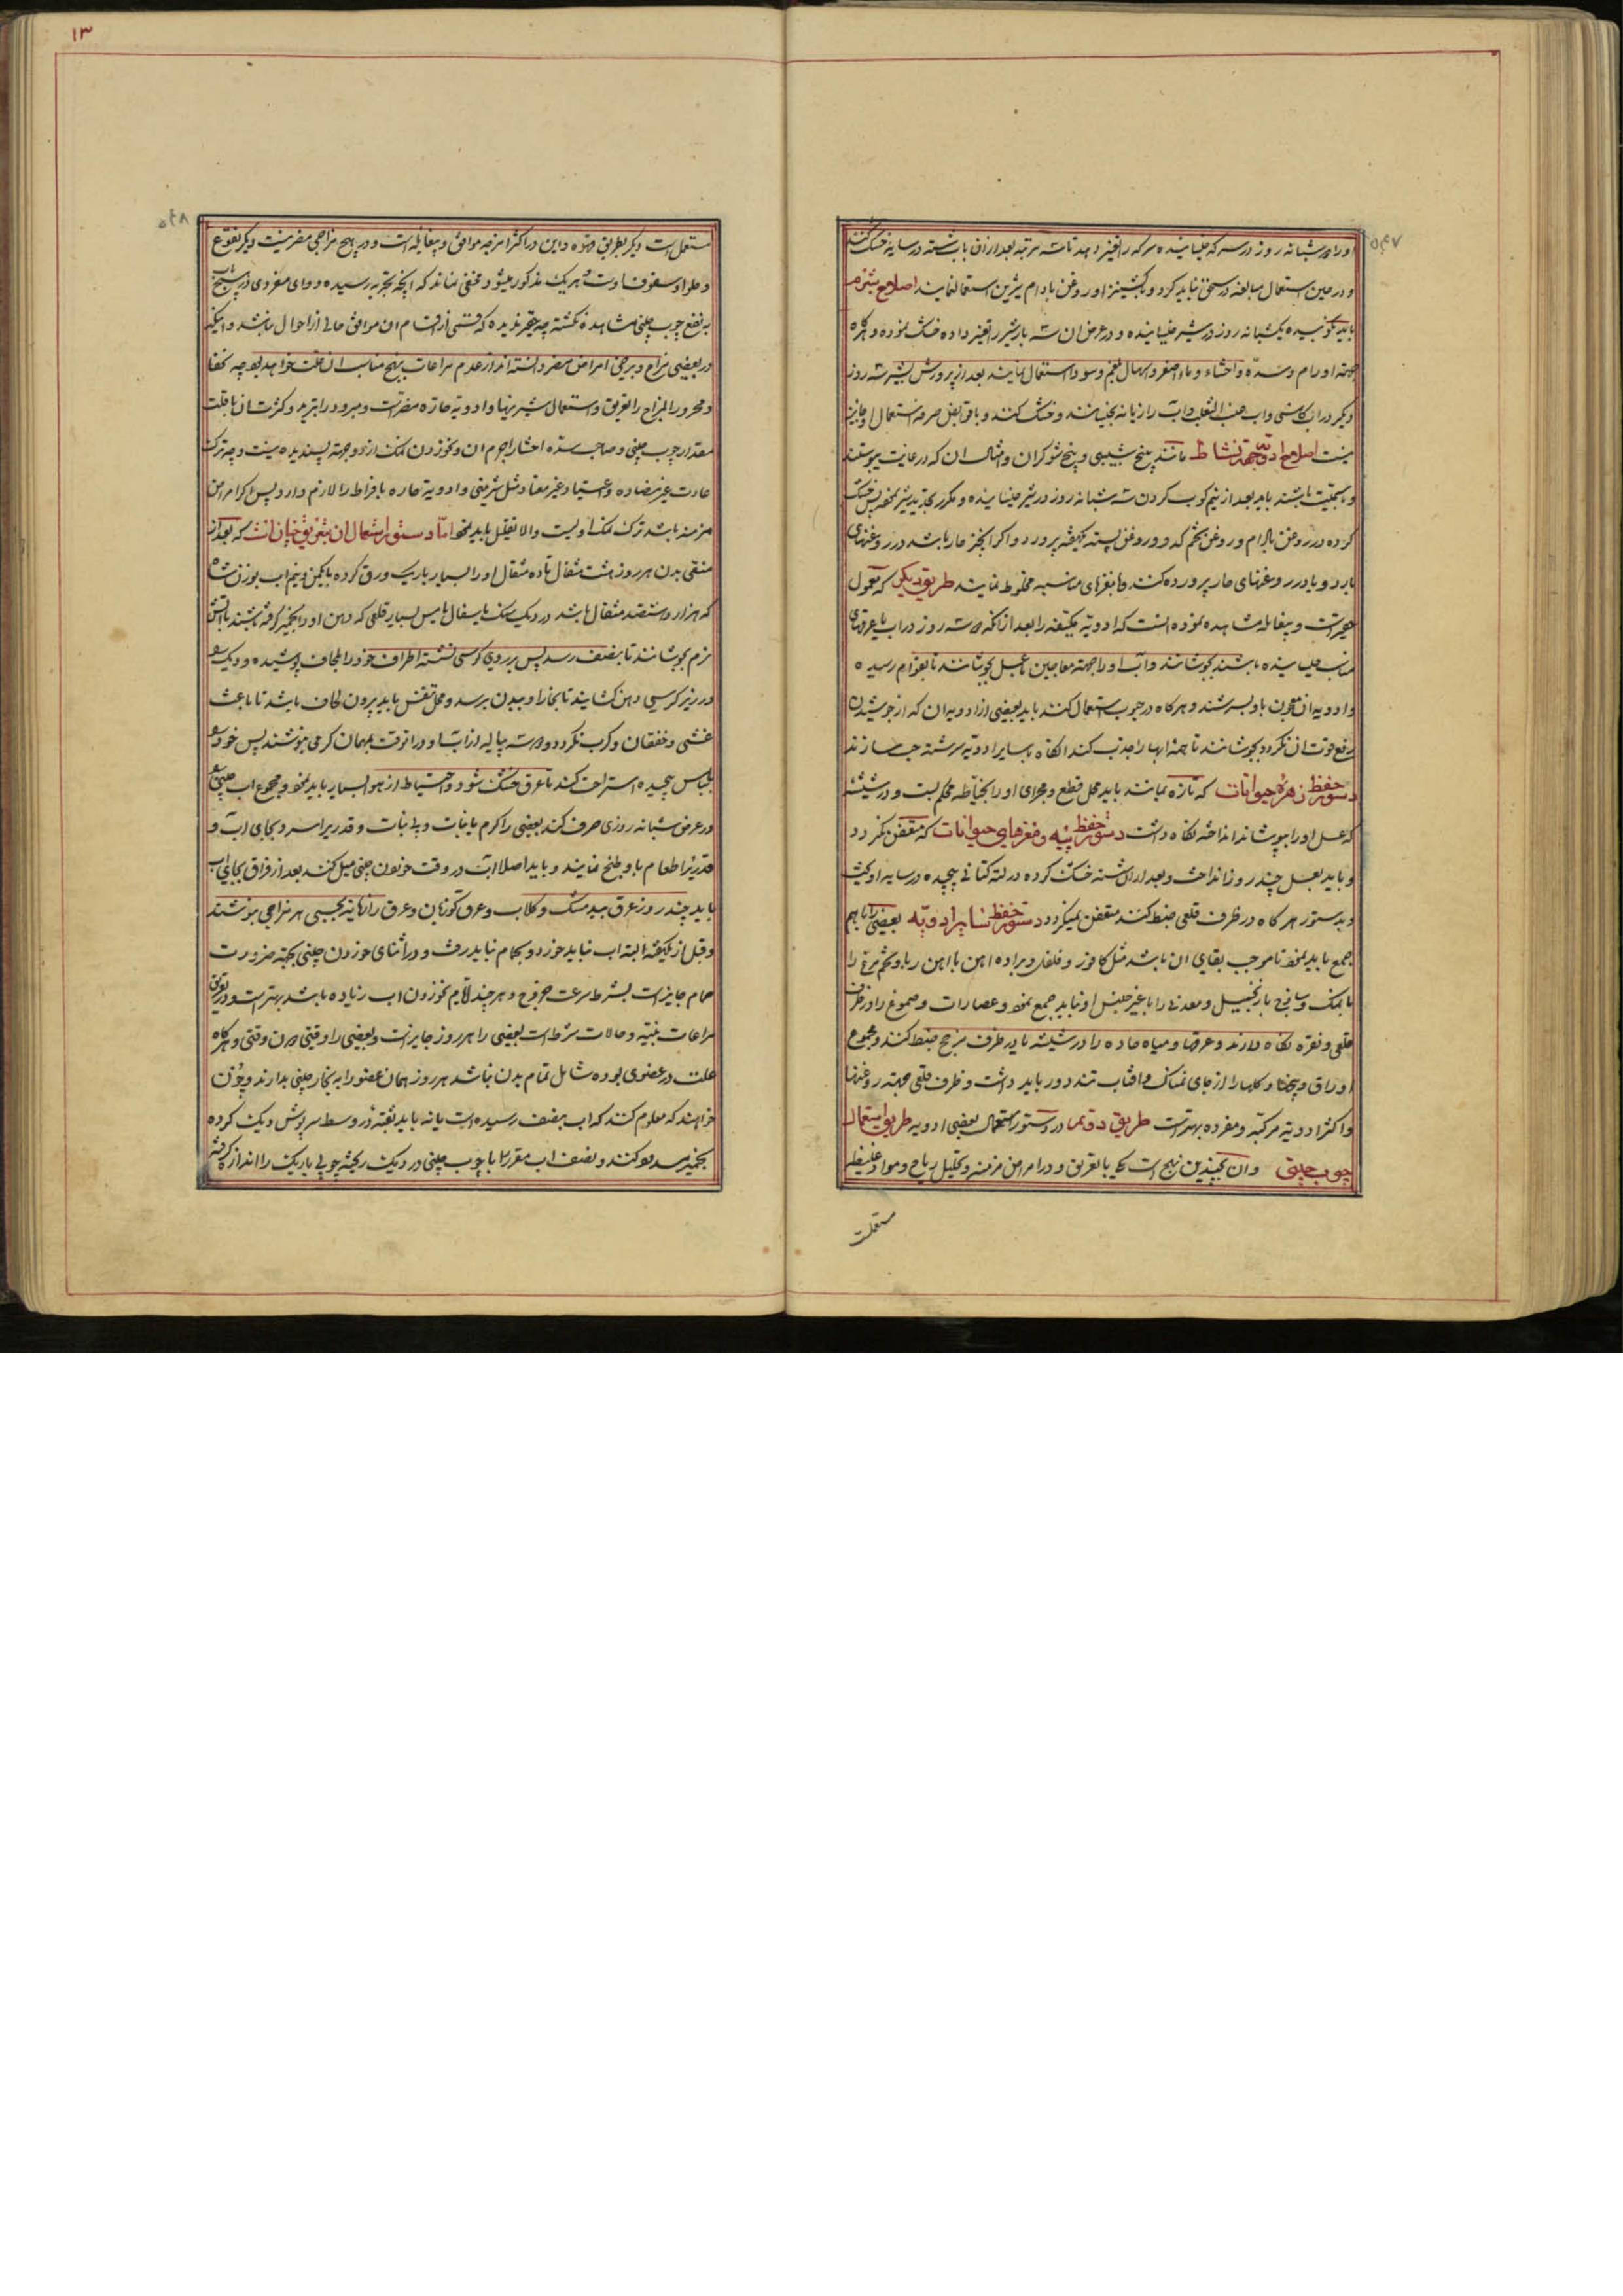 او را دو شبانه روز در سرکه خیسانیده سرکه را تغییر دهند تا سه مرتبه بعد از آن باب شسته در سایه خشک کنند
و در حین استعمال مبالغه در سحق نباید کرد و بکشنیز و روغن بادام شیرین استعمال نمایند اصلاح شبرم
باید کوبیده یکشبانه روز در شیر خیسانیده و در عرض آن سه بار شیر را تغییر داده خشک نموده و هرگاه
جهته اورام و سده و احشاء و ماء اصفر و اسهال بلغم و سودا استعمال نمایند بعد از پرورش بشیر سه روز
دیگر در آب کاسنی و آب عنب الثعلب و آب رازیانه بخیسانند و خشک کنند و با قوابض صرفه استعمال او جایز
نیست اصلاح ادویه جهته نشاط مانند بنج شبیبی و بنج شوکران و امثال آن که در غایت یبوست
و سمیت باشند باید بعد از نیم کوب کردن سه شبانه روز در شیر خیسانیده و مکرر تجدید شیر نموده پس خشک
کرده در روغن بادام و روغن تخم کدو و روغن پسته یکهفته پرورد و اگر آنچیز حار باشد در روغنهای
بارد و بارد در روغنهای حار پرورده کنند و با مغزهای مناسبه مخلوط نمایند طریق دیگر که معمول
حقیر است و بیغایله مشاهده نموده انست که ادویه یکهفته را بعد از آنکه دو سه روز در آب یا عرقهای
مناسب خیسانیده باشند بجوشانند و آب او را جهته معاجین با عسل بجوشانند تا بقوام رسیده
و ادویه آن معجون باو بسرشند و هرگاه در حبوب استعمال کنند باید بعضی از ادویه آن که از جوشیدن
رفع قوت آن نگردد بجوشانند تا همه آبها را جذب کند آنگاه با سایر ادویه سرشته حب سازند
دستور حفظ زهره حیوانات که تازه بماند باید محل قطع و مجرای او را بخیاطه محکم بست و در شیشه
که عسل او را بپوشاند انداخته نگاه داشت دستور حفظ پیه و مغزهای حیوانات که متعفن نگردد
و باید بعسل چند روز انداخت و بعد از آن شسته خشک کرده در لته کتانی پیچیده در سایه آویخت
و بدستور هرگاه در ظرف قلعی ضبط کنند متعفن نمیگردد دستور حفظ سایر ادویه بعضی را با هم
جمع باید نمود تا موجب بقای آن باشد مثل کافور و فلفل و براده آهن با آهن ربا و تخم مرغ را
با نمک و سانی با زنجبیل و معدنی را با غیر جنس او نباید جمع نمود و عصارات و صموغ را در ظرف
قلعی و نقره نگاه دارند و عرقها و میاه حاده را در شیشه یا در ظرف مزجج ضبط کنند و مجموع
اوراق و بیخها و گلها را از جای نمناک و آفتاب تند دور باید داشت و ظرف قلعی جهته روغنها
و اکثر ادویه مرکبه و مفرده بهتر است طریق دوم در دستور استعمال بعضی ادویه طریق استعمال
چوب چینی و آن بچندین نهج است یکی با تعریق و در امراض مزمنه و تحلیل ریاح و مواد غلیظه
مستعملست
۱۳
مستعمل است دیگر بطریق قهوه و این در اکثر امزجه موافق و بیغایله است و در هیچ مزاجی مضر نیست دیگر نقوع
و حلوا و سفوف است و هر یک مذکور میشود و مخفی نماند که آنچه بتجربه رسیده دوای مفردی در هیچ باب
به نفع چوب چینی مشاهده نگشته چه حقیر ندیده که قسمی از اقسام آن موافق حالی از احوال نباشد و اینکه
در بعضی مزاج و برخی امراض مضر دانسته اند از عدم مراعات نهج مناسب آن علت خواهد بود چه اکتفا
و محرور المزاج را تعریق و استعمال شیرینیها و ادویه حاره مضر است و مبرود را تبرید و کثرت آن با قلت
مقدار چوب چینی و صاحب سده احشا را جرم آن و نخوردن نمک از دو جهته پسندیده نیست و چه ترک
عادت غیر مضاده و اعتیاد غیر معتاد مثل شیرینی و ادویه حاره بافراط را لازم دارد پس اگر امراض
مزمنه باشد ترک نمک اولیست والا تقلیل باید نمود اما دستور استعمال آن بتعریق چنان است که بعد از
منقی بدن هر روز هشت مثقال تا ده مثقال او را بسیار باریک ورق کرده با یکمن و نیم آب بوزن شاه
که هزار و ششصد مثقال باشد در دیک سنک یا سفال یا مس بسیار قلعی که دهن او را بخمیر گرفته باشند با آتش
نرم بجوشانند تا بنصف رسد پس بر روی کرسی نشسته اطراف خود را بلحاف پوشیده و دیک را
در زیر کرسی دهن گشایند تا بخار او ببدن برسد و محل تنفس باید بیرون لحاف باشد تا باعث
غشی و خفقان و کرب نگردد و دو سه پیاله از آب او در آنوقت بهمان گرمی بنوشند پس خود را
بلباس پیچیده استراحت کند تا عرق خشک شود و احتیاط از هوا بسیار باید نمود و مجموع آب چینی را
در عرض شبانه روزی صرف کند بعضی را گرم با نبات و بی نبات و قدری را سرد بجای آب و
قدریرا طعام باو طبخ نمایند و باید اصلا آب در وقت خوردن چینی میل نکند بعد از فراق بجای آب
باید چند روز عرق بید مشک و گلاب و عرق گاوزبان و عرق رازیانه بحسب هر مزاجی بنوشند
و قبل از یکهفته البته آب نباید خورد و بحمام نباید رفت و در اثنای خوردن چینی بجهته ضرورت
حمام جایز است بشرط سرعت خروج و هر چند لازم نخوردن آب زیاده باشد بهتر است و در تعریق
مراعات بنیه و حالات شرط است بعضی را هر روز جایز است و بعضی را وقتی دون وقتی و هرگاه
علت در عضوی بوده شامل تمام بدن نباشد هر روز همان عضو را به بخار چینی بدارند و چون
خواهند که معلوم کنند که آب بنصف رسیده است یا نه باید ثقبه در وسط سرپوش دیک کرده
بخمیر مسدود کنند و نصف آب مقرر را با چوب چینی در دیک ریخته چوبی باریک را اندازه گرفته